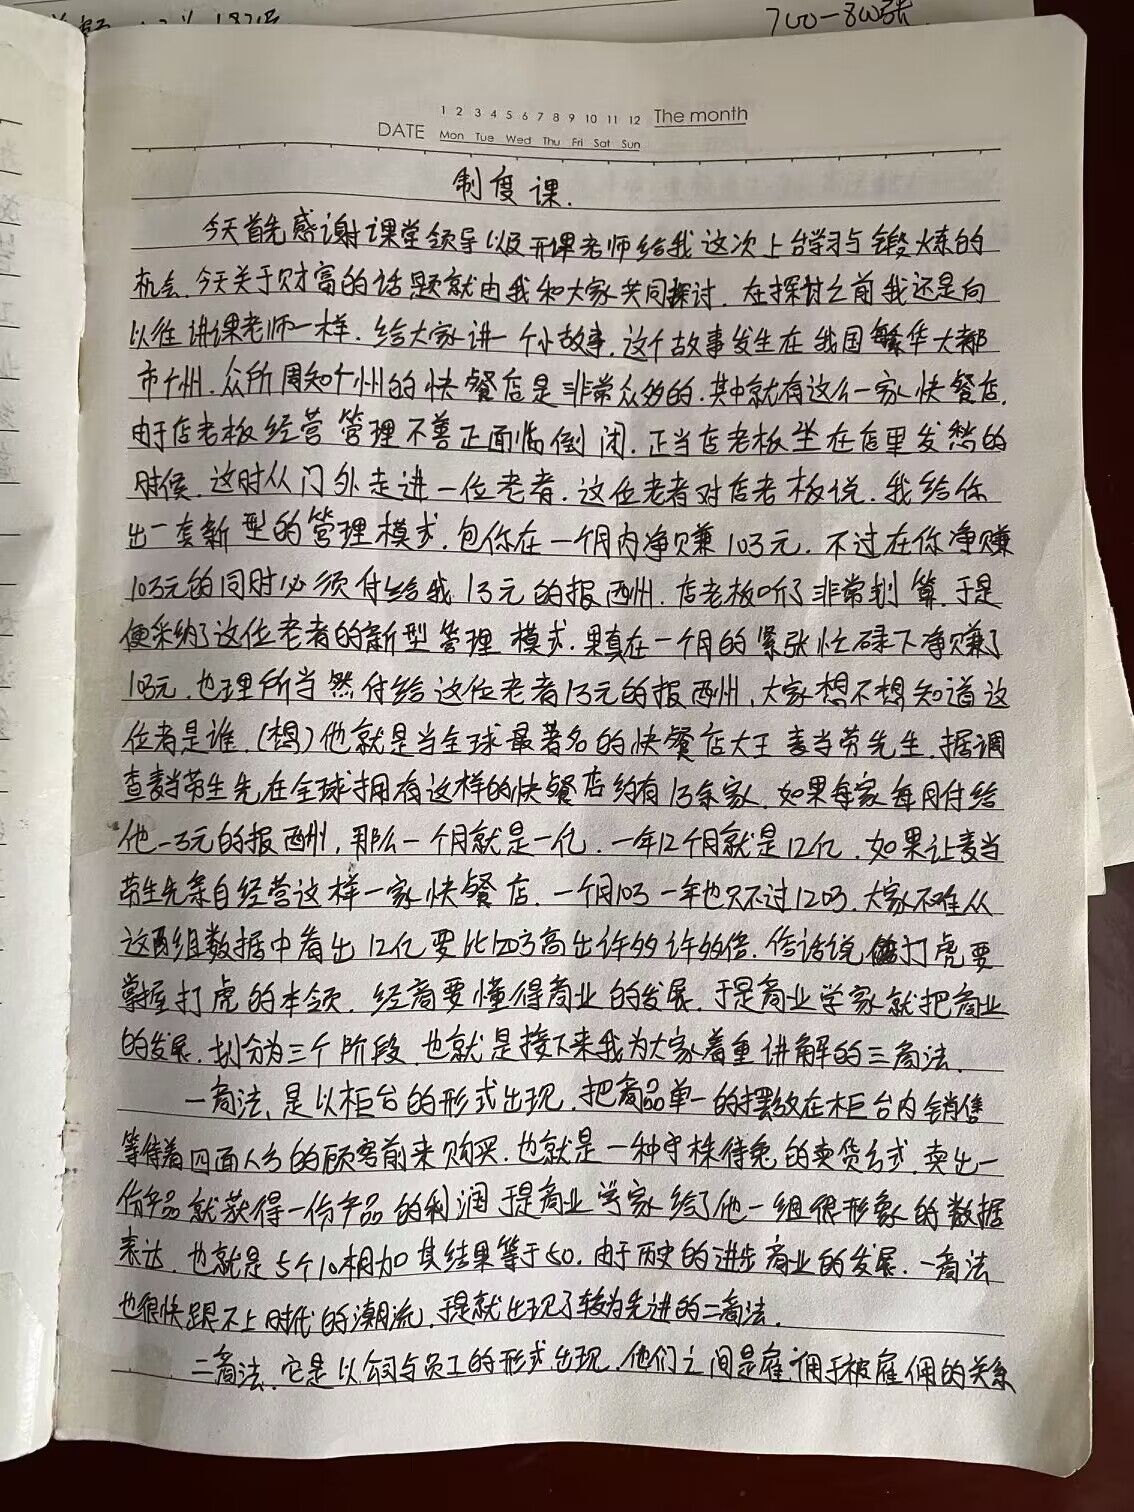 700-800张
1 2 3 4 5 6 7 8 9 10 11 12 The month
DATE Mon Tue Wed Thu Fri Sat Sun
制度课.
今天首先感谢课堂领导以及开课老师给我这次上台学习与锻炼的
机会.今天关于财富的话题就由我和大家共同探讨.在探讨之前我还是向
以往讲课老师一样.给大家讲一个小故事.这个故事发生在我国繁华大都
市广州.众所周知广州的快餐店是非常众多的.其中就有这么一家快餐店.
由于店老板经营管理不善正面临倒闭.正当店老板坐在店里发愁的
时候.这时从门外走进一位老者.这位老者对店老板说.我给你
出一套新型的管理模式.包你在一个月内净赚10万元.不过在你净赚
10万元的同时必须付给我1万元的报酬.店老板听了非常划算.于是
便采纳了这位老者的新型管理模式.果真在一个月的紧张忙碌下净赚了
10万元.也理所当然付给这位老者1万元的报酬.大家想不想知道这
位者是谁.(想)他就是当全球最著名的快餐店大王麦当劳先生.据调
查麦当劳生先在全球拥有这样的快餐店约有1万余家.如果每家每月付给
他一万元的报酬,那么一个月就是一亿.一年12个月就是12亿.如果让麦当
劳生先亲自经营这样一家快餐店.一个月10万一年也只不过120万.大家不难从
这两组数据中看出12亿要比120万高出许多许多倍.俗话说,打虎要
掌握打虎的本领.经商要懂得商业的发展.于是商业学家就把商业
的发展.划分为三个阶段.也就是接下来我为大家着重讲解的三商法.
一商法,是以柜台的形式出现.把商品单一的摆放在柜台内销售
等待着四面人方的顾客前来购买.也就是一种守株待兔的卖货方式.卖出一
份产品就获得一份产品的利润于是商业学家给了他一组很形象的数据
表达.也就是5个10相加其结果等于50.由于历史的进步商业的发展.一商法
也很快跟不上时代的潮流,于是就出现了较为先进的二商法.
二商法.它是以公司与员工的形式出现.他们之间是雇佣于被雇佣的关系